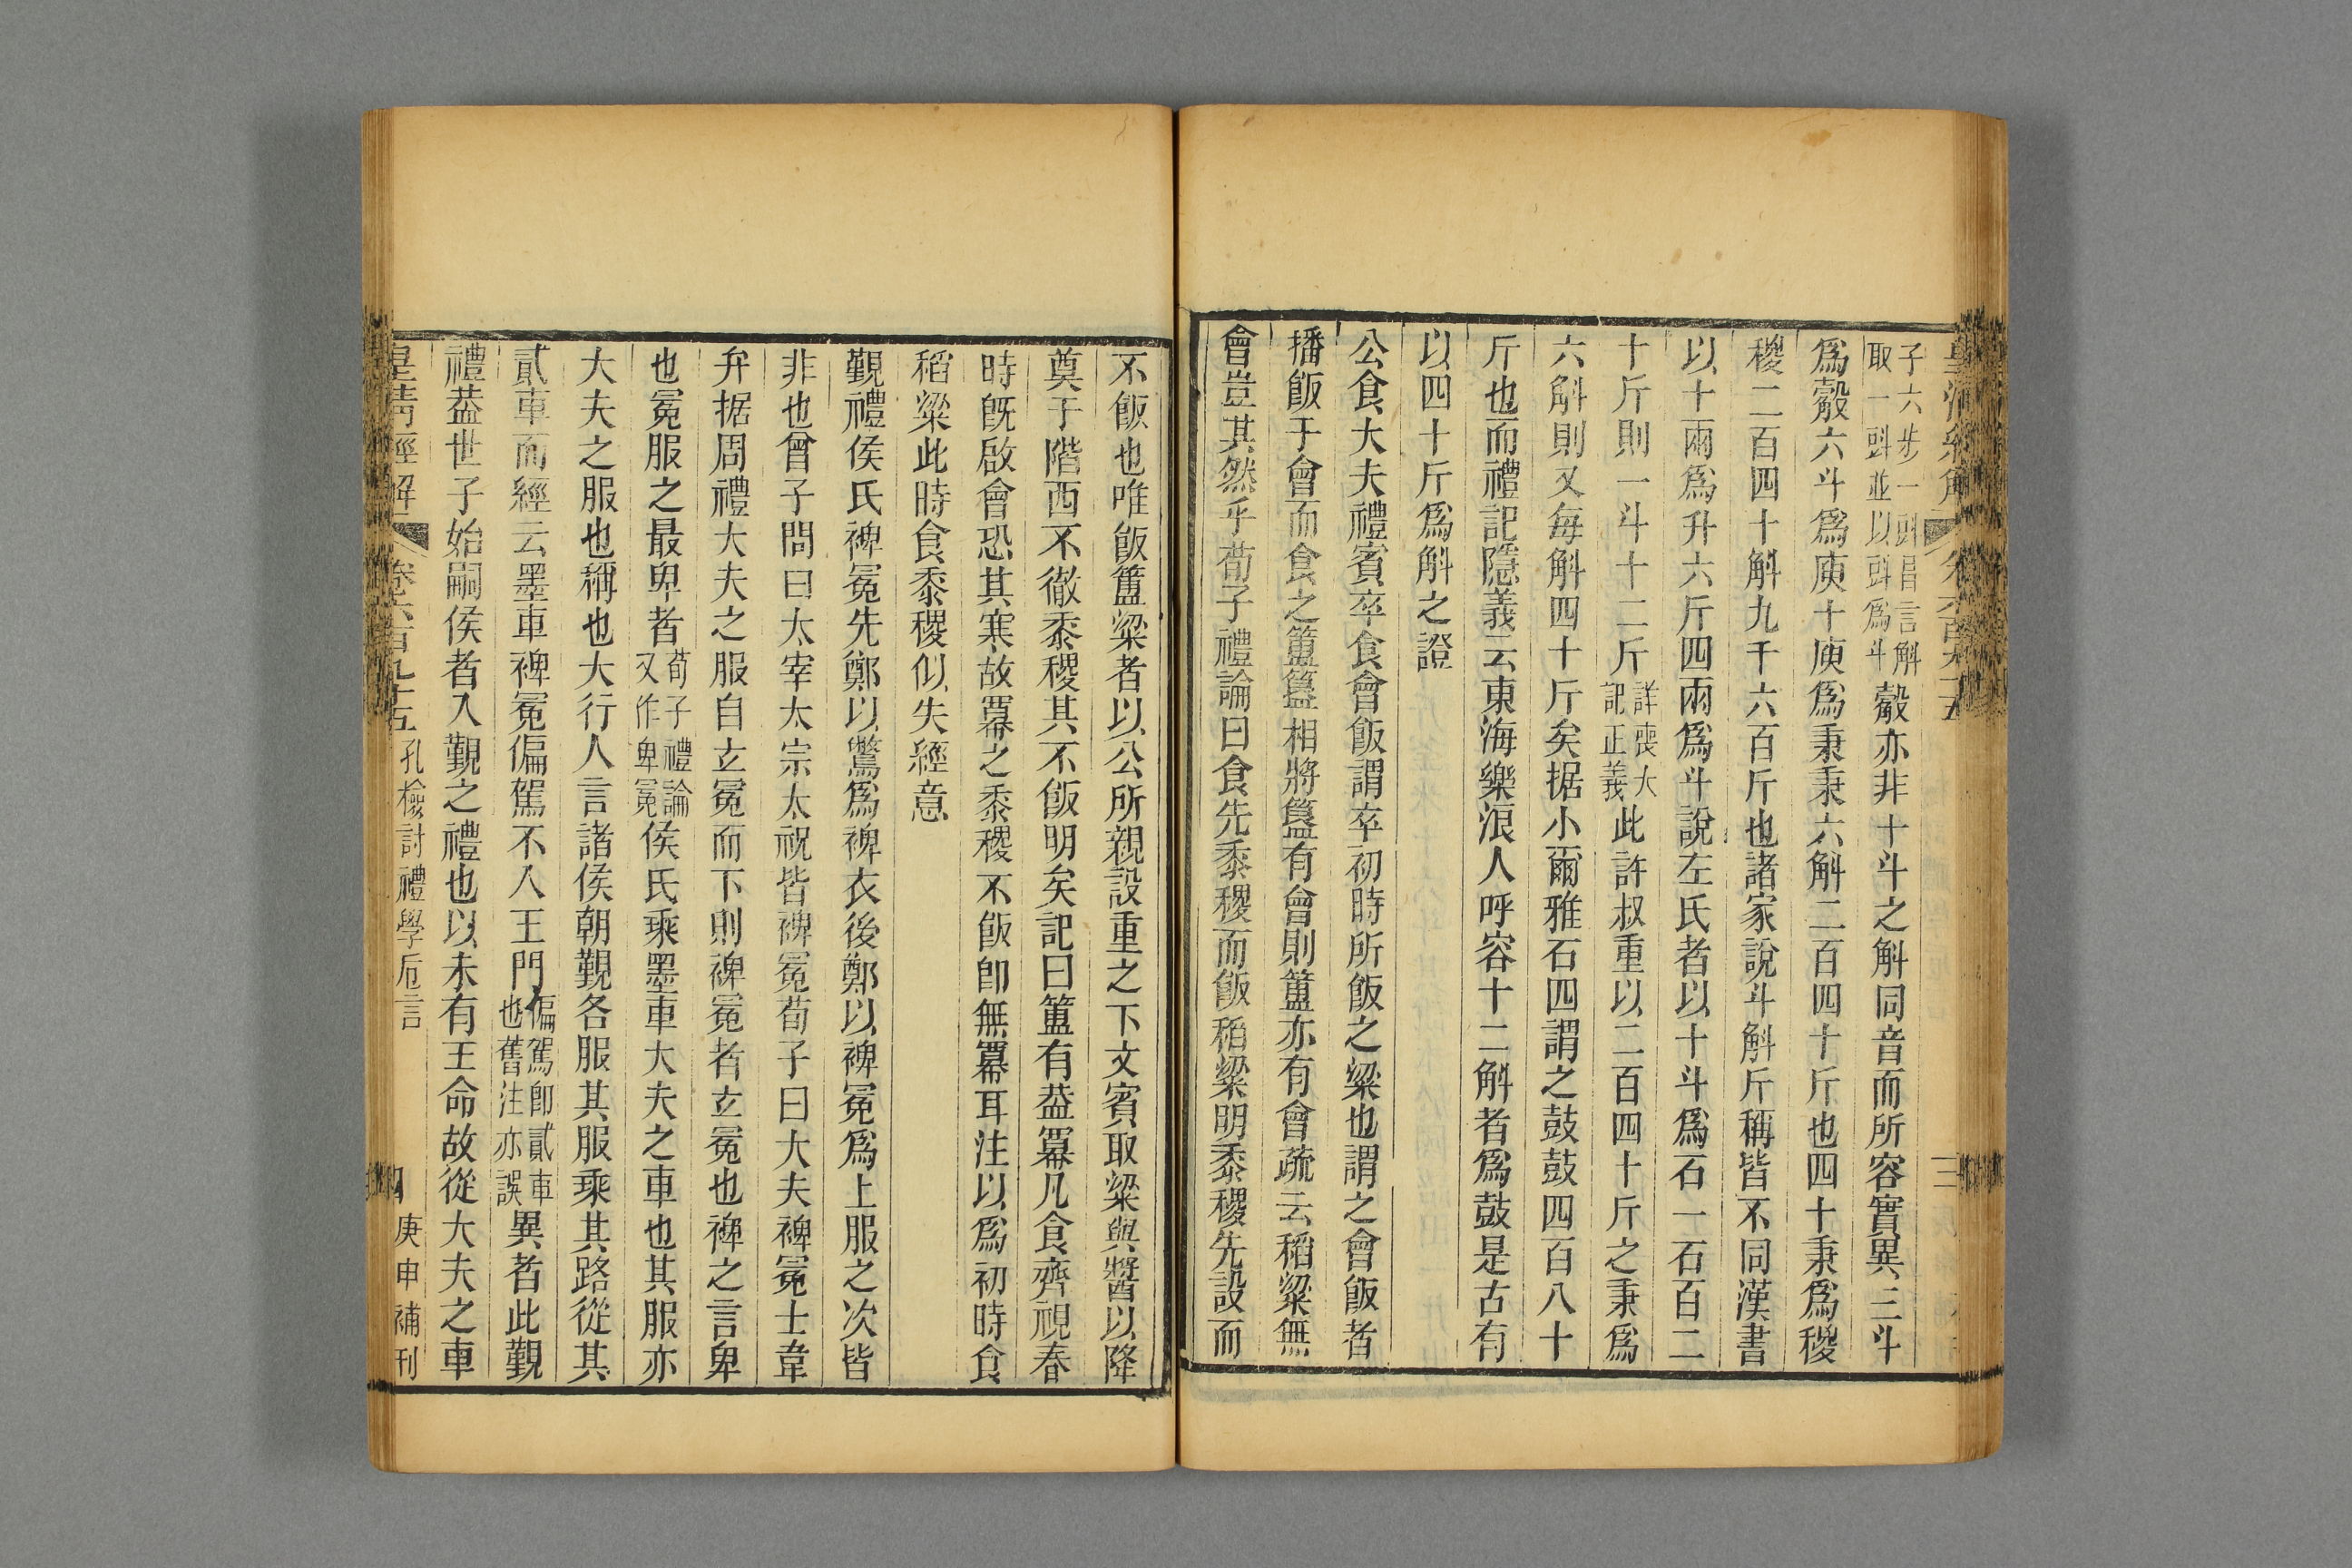 子六步一𣁬𣁬言斛
取一𣁬並以𣁬爲斗
觳亦非十斗之斛同音而所容實異三斗
爲觳六斗爲庾十庾爲秉秉六斛二百四十斤也四十秉爲稯
稯二百四十斛九千六百斤也諸家說斗斛斤稱皆不同漢書
以十兩爲升六斤四兩爲斗說左氏者以十斗爲石一石百二
十斤則一斗十二斤
詳喪大
記正義
此許叔重以二百四十斤之秉爲
六斛則又每斛四十斤矣据小爾雅石四謂之鼓鼓四百八十
斤也而禮記隱義云東海樂浪人呼容十二斛者爲鼓是古有
以四十斤爲斛之證
公食大夫禮賓卒食會飯謂卒初時所飯之粱也謂之會飯者
播飯于會而食之簠簋相將簋有會則簠亦有會疏云稻粱無
會豈其然乎荀子禮論曰食先黍稷而飯稻粱明黍稷先設而
不飯也唯飯簠粱者以公所親設重之下文賓取粱與醬以降
奠于階西不徹黍稷其不飯明矣記曰簠有葢冪凡食齊視春
時旣啟會恐其寒故冪之黍稷不飯卽無冪耳注以爲初時食
稻粱此時食黍稷似失經意
覲禮侯氏裨冕先鄭以鷩爲裨衣後鄭以裨冕爲上服之次皆
非也曾子問曰太宰太宗太祝皆裨冕荀子曰大夫裨冕士韋
弁据周禮大夫之服自玄冕而下則裨冕者玄冕也裨之言卑
也冕服之最卑者
荀子禮論
又作卑冕
侯氏乘墨車大夫之車也其服亦
大夫之服也稱也大行人言諸侯朝覲各服其服乘其路從其
貳車而經云墨車裨冕偏駕不入王門
偏駕卽貳車
也舊注亦誤
異者此覲
禮葢世子始嗣侯者入覲之禮也以未有王命故從大夫之車
皇清經解 卷六百九十五 孔檢討禮學卮言 四 庚申補刊